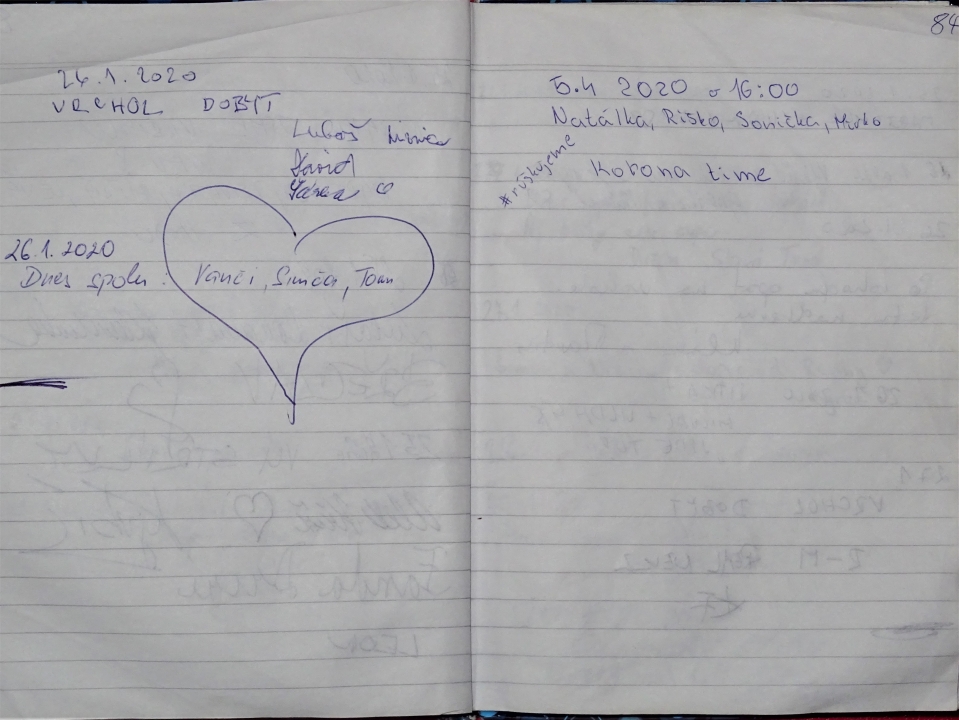 26.1.2020
VRCHOL DOBYT
Luboš
David
26.1.2020
Dnes spolu : Vanči, Simča, Tom
84
5.4 2020 o 16:00
Natálka, Riško, Sonička, Mirko
#rúškujeme
Korona time